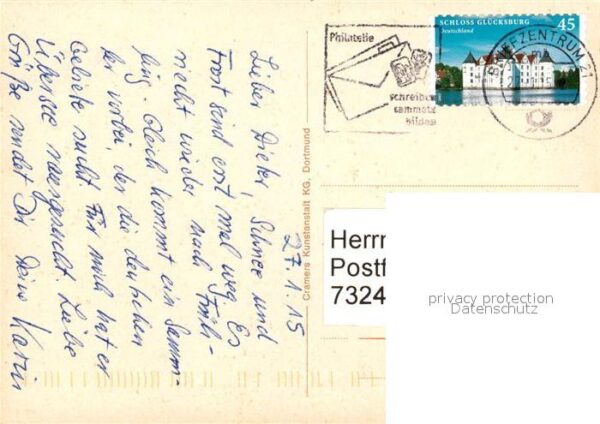 27.1.15
Lieber Dieter, Schnee und
Frost sind erst mal weg. Es
riecht wieder nach Früh-
ling. Gleich kommt ein Samm-
ler vorbei, der die deutschen
Gebiete sucht. Für mich hat er
Übersee rausgesucht. Liebe
Grüße sendet Dir Deine Karin
Cramers Kunstanstalt KG, Dortmund
Philatelie
schreiben
sammeln
bilden
SCHLOSS GLÜCKSBURG 45
Deutschland
BRIEFZENTRUM 21
Herrn
Postf
7324
privacy protection
Datenschutz